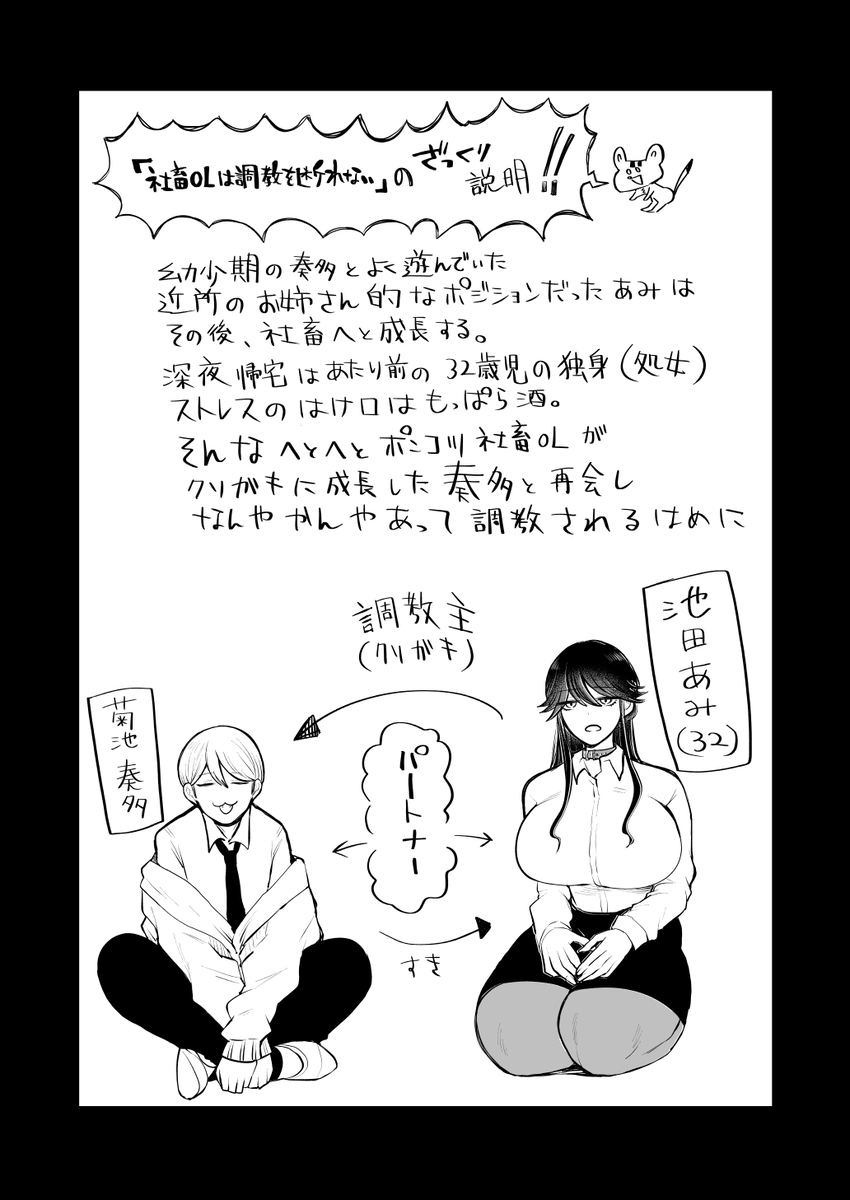 「社畜OLは調教を断れない」のざっくり説明!!
幼少期の奏多とよく遊んでいた
近所のお姉さん的なポジションだったあみは
その後、社畜へと成長する。
深夜帰宅はあたり前の32歳児の独身(処女)
ストレスのはけ口はもっぱら酒。
そんなへとへとポンコツ社畜OLが
クソガキに成長した奏多と再会し
なんやかんやあって調教されるはめに
調教主
(クソガキ)
池田あみ(32)
菊池奏多
パートナー
すき